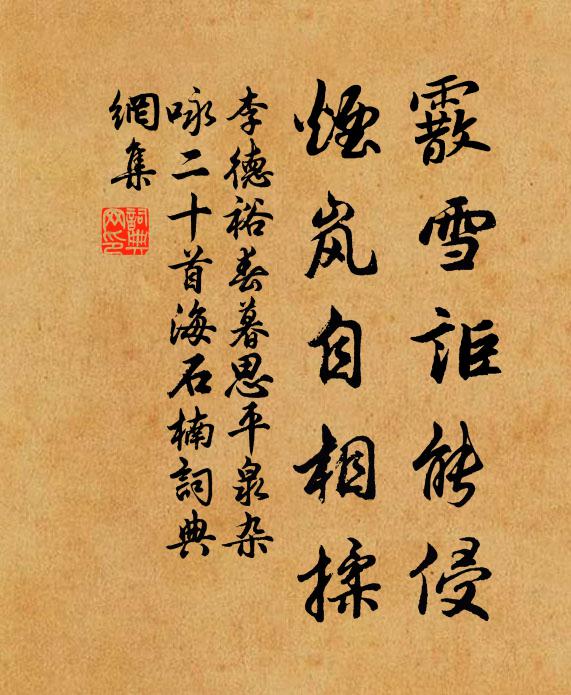 霰雪詎能侵
煙岚自相揉
李德裕春暮思平泉杂
咏二十首海石楠詞典
網集
詞典網印